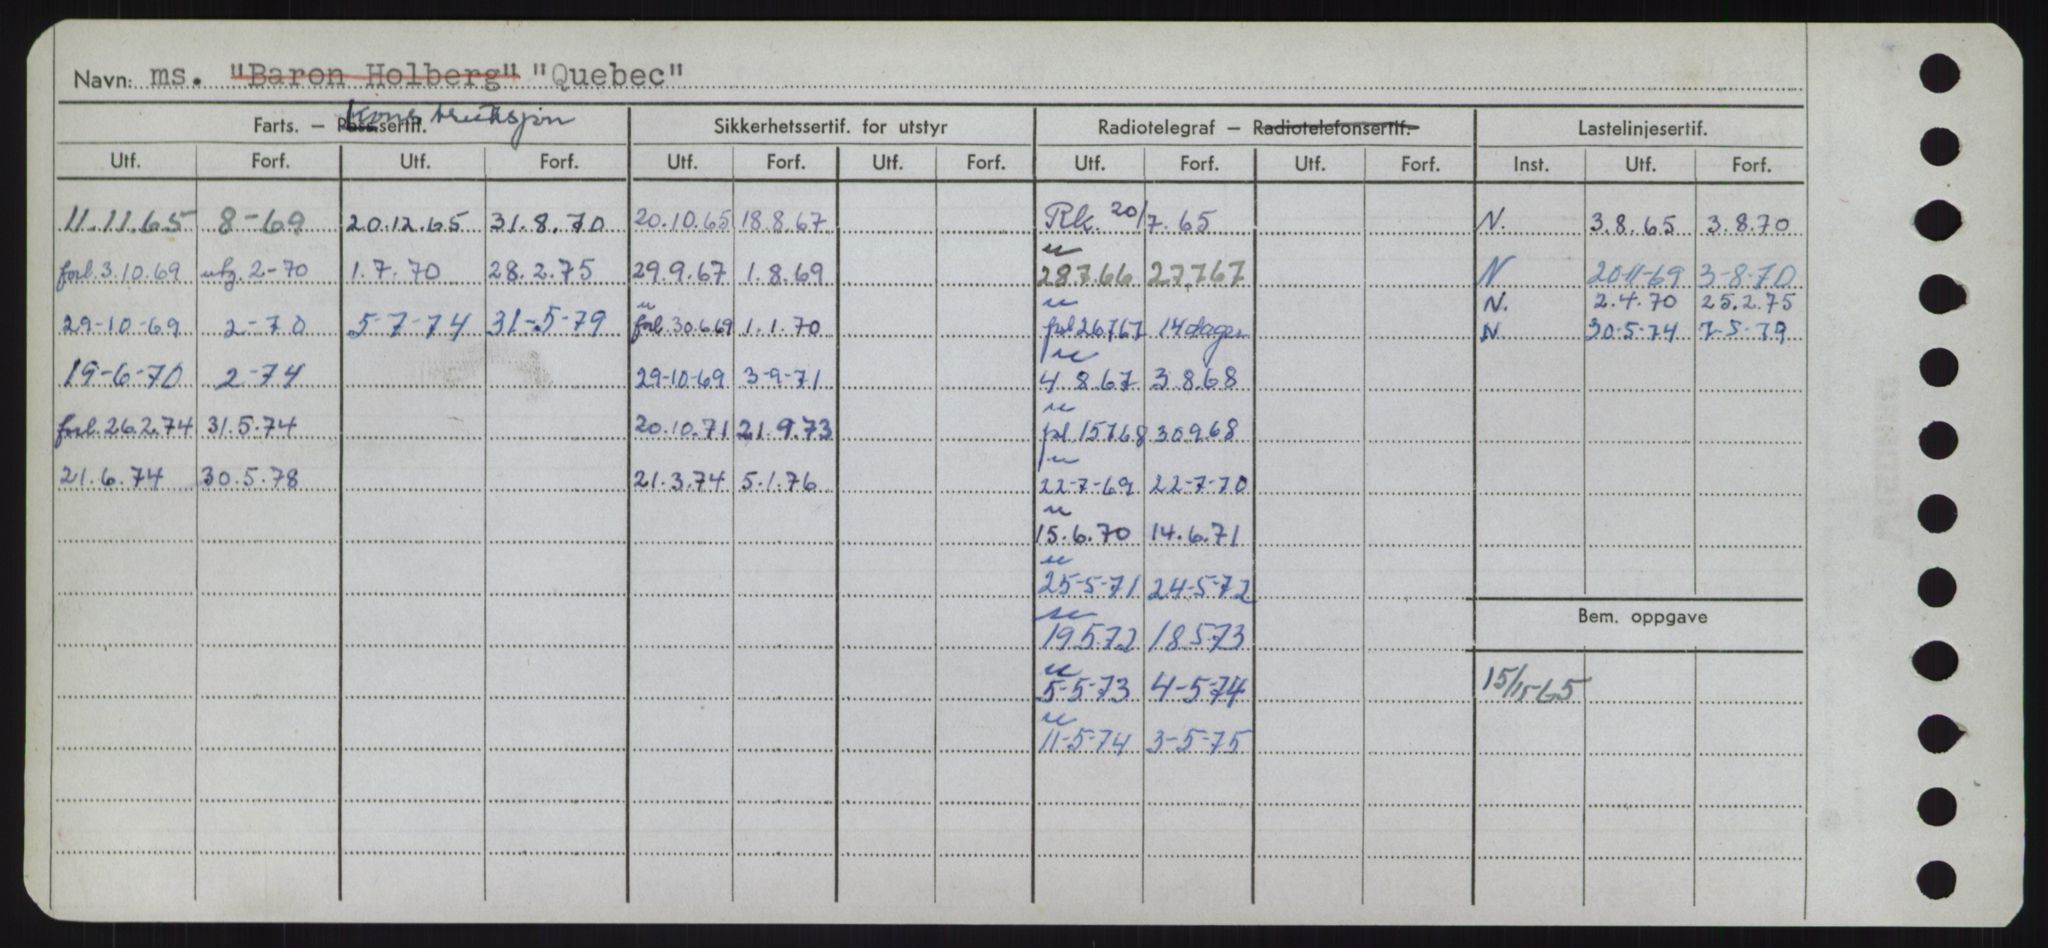 Navn: ms. "Baron Holberg" "Quebec"
Farts. – Pass.sertif. Konstruksjon Sikkerhetssertif. for utstyr Radiotelegraf – Radiotelefonsertif. Lastelinjesertif.
Utf. Forf. Utf. Forf. Utf. Forf. Utf. Forf. Utf. Forf. Utf. Forf. Inst. Utf. Forf.
11.11.65 8-69 20.12.65 31.8.70 20.10.65 18.8.67 Rk. 20/7.65 N. 3.8.65 3.8.70
forl.3.10.69 utg.2-70 1.7.70 28.2.75 29.9.67 1.8.69 u 28.7.66 27.7.67 N 20-11-69 3-8-70
N. 2.4.70 25.2.75
29-10-69 2-70 5-7-74 31-5-79 u forl.30.6.69 1.1.70 u forl 26.7.67 14 dager N. 30-5-74 7-5-79
19-6-70 2-74 29-10-69 3-9-71 u 4.8.67 3.8.68
forl.26.2.74 31.5.74 20.10.71 21.9.73 u forl 15.7.68 30.9.68
21.6.74 30.5.78 21.3.74 5.1.76 u 22-7-69 22-7-70
u 15.6.70 14.6.71
u 25-5-71 24-5-72
Bem. oppgave
u 19.5.72 18.5.73
u 5-5-73 4-5-74 15/11-65
u 11-5-74 3-5-75